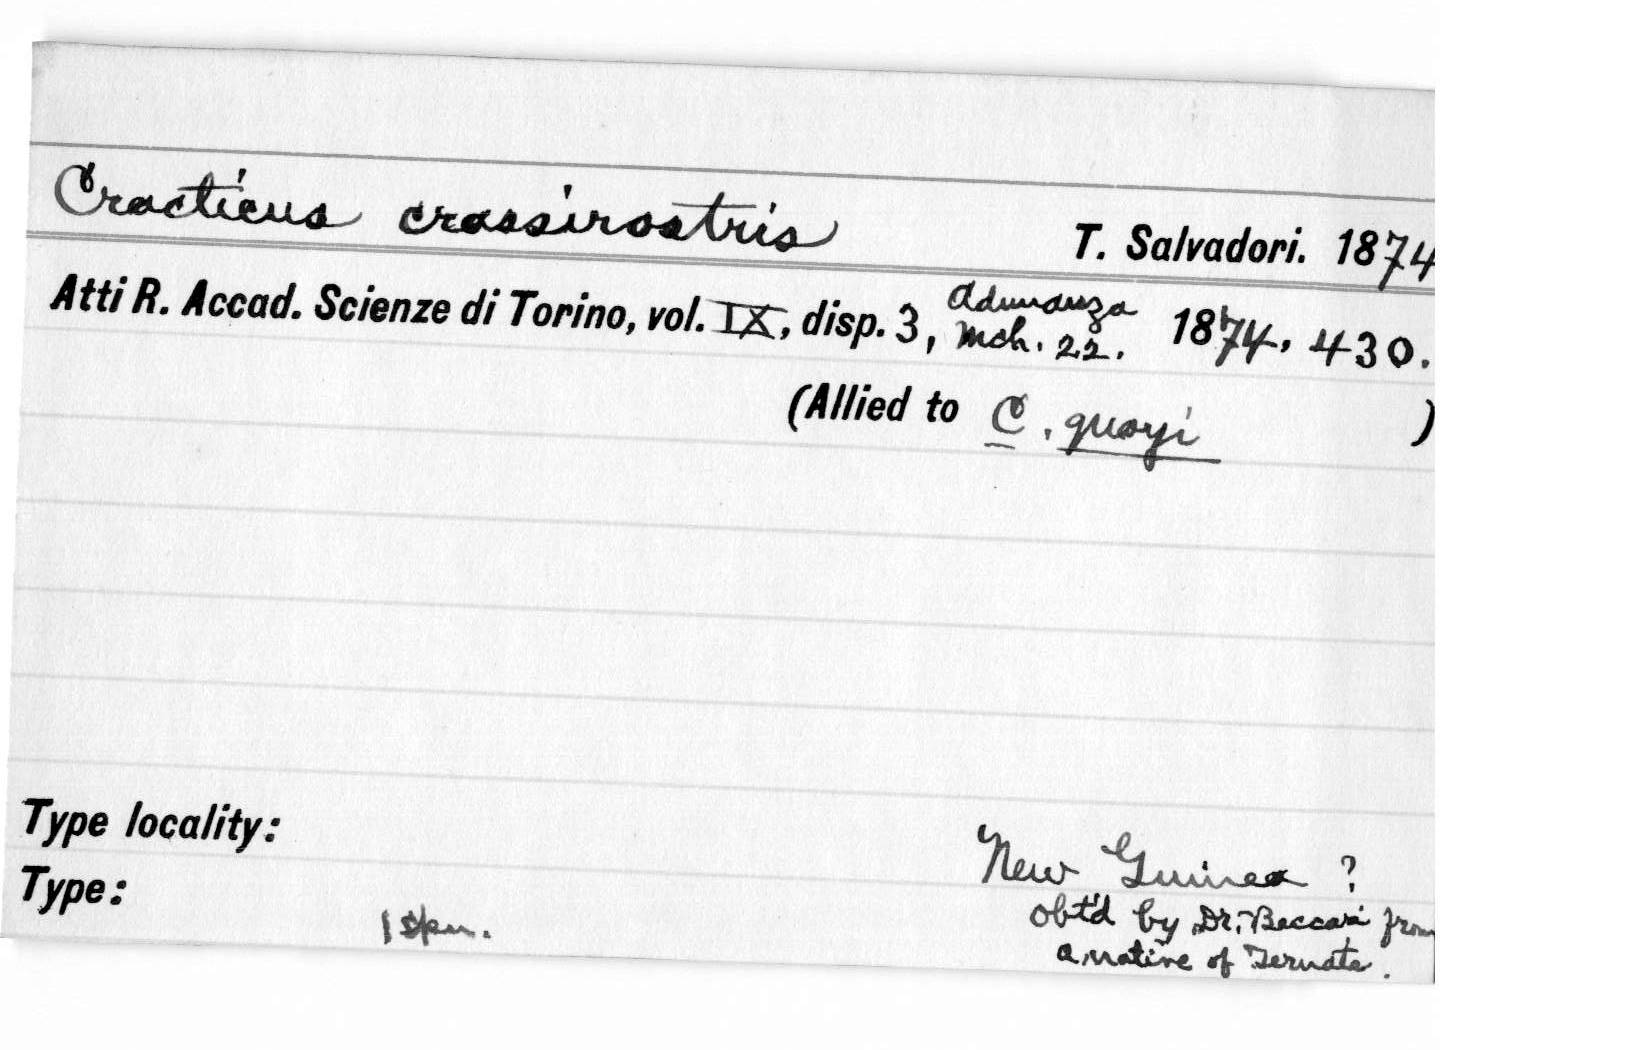 Cracticus crassirostris
T. Salvadori. 1874
Atti R. Accad. Scienze di Torino, vol. IX, disp. 3, Adunanza Mch. 22. 1874, 430.
(Allied to C. quoyi )
Type locality:
New Guinea ?
Type:
obt'd by Dr. Beccari from
1 spm.
a native of Ternate.